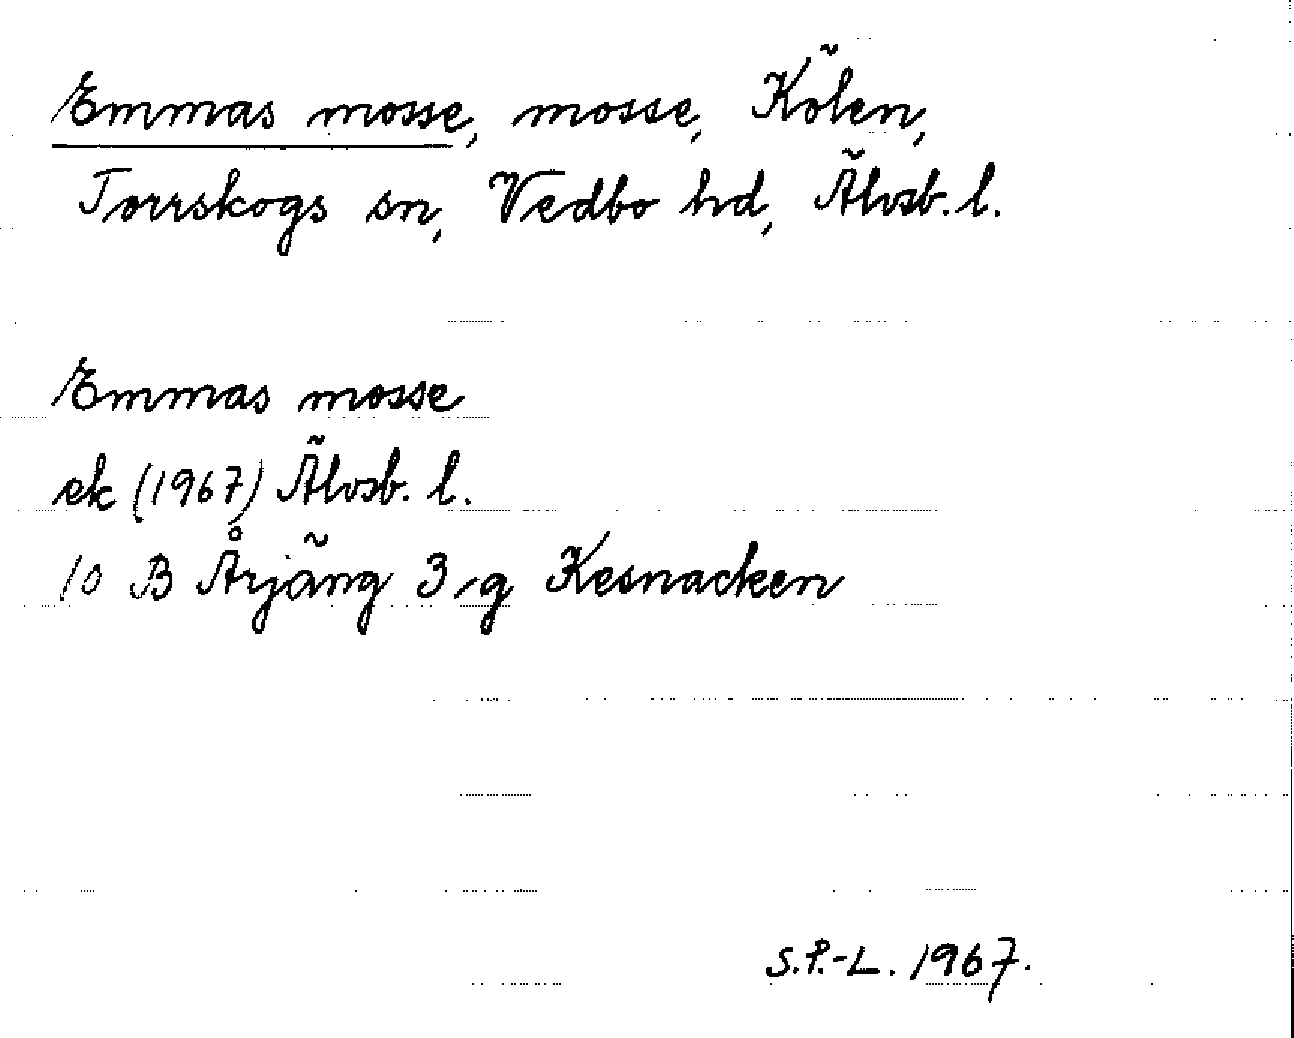 Emmas mosse, mosse, Kölen,
Torrskogs sn, Vedbo hd, Älvsb. l.
Emmas mosse
ek (1967) Älvsb. l.
10 B Årjäng 3 g Kesnacken
S.P.-L. 1967.